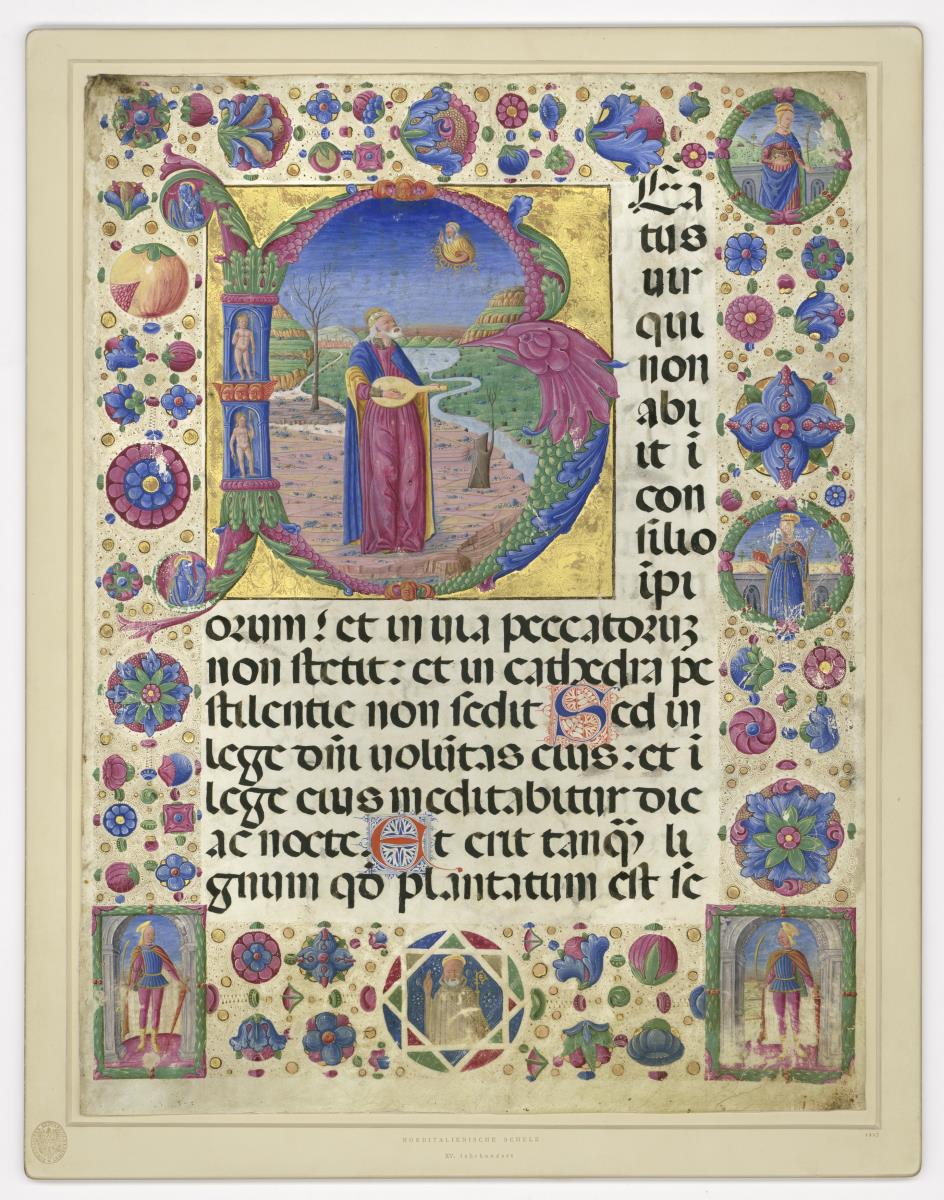 Ea
tus
uir
qui
non
abi
it i
con
silio
ipi
orum! et in uia peccatoruz
non stetit: et in cathedra pe
stilentie non sedit Sed in
lege dñi uolũtas eius: et i
lege eius meditabitur die
ac nocte. Et erit tanq̃ li
gnum qð plantatum est sc
NORDITALIENISCHE SCHULE
XV. Jahrhundert